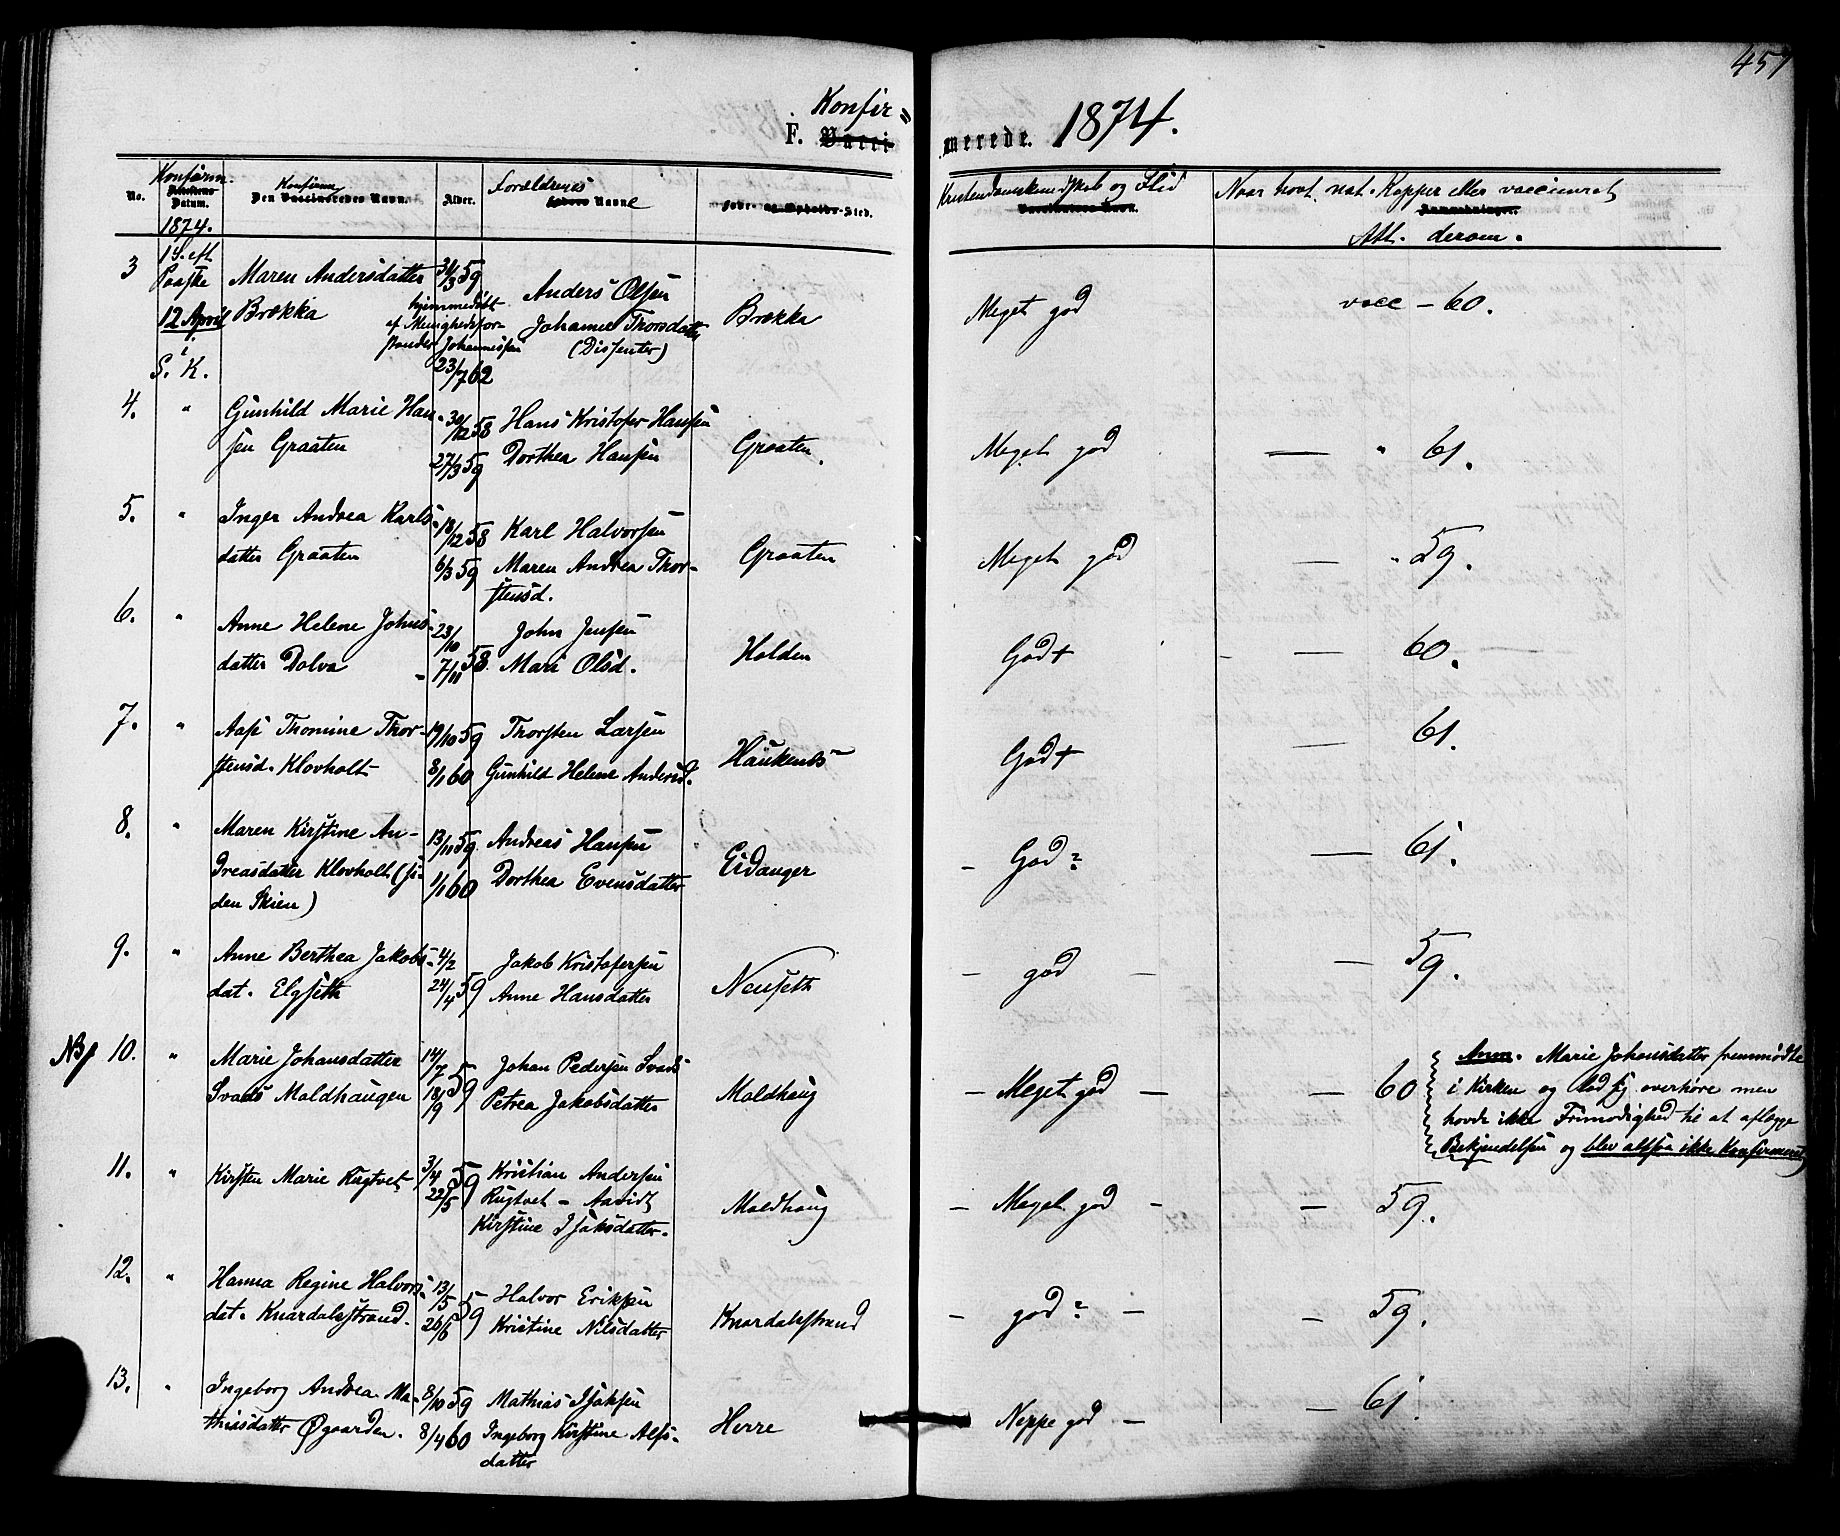 457
Konfir=
F. Vacci merede. 1874.
No. Konfirm. Datum. Konfirm Den Vaccineredes Navn. Alder. Forældrenes Navne Føde- og Opholds-Sted. Kristendomskundskab og Flid Vaccinateurs Navn. Naar havt nat. Kopper eller vaccineret
Anmærkninger.
Att. derom.
1874.
3 1 S. eft Maren Andersdatter 31/3 59 Anders Olsen
Paaske Brækka hjemmedøbt Johanne Thorsdatter Brække Meget god vacc - 60.
12 April af Menighedsfor- (Dissenter)
i stander Johannessen
S. K. 23/7 62
4. " Gunhild Marie Han- 30/12 58 Hans Kristofer Hansen
sen Graaten 27/3 59 Dorthea Hansen Graaten. Meget god — " 61.
5. " Inger Andrea Karls- 18/12 58 Karl Halvorsen
datter Graaten 6/3 59 Maren Andrea Thor- Graaten Meget god — " 59.
stensd.
6. " Anne Helene Johns- 23/10 John Jensen
datter Dolva - 7/11 58 Mari Olsd. Holden God+ - — 60.
7. " Aase Thomine Thor- 19/10 59 Thorsten Larsen
stensd. Klovholt 8/1 60 Gunhild Helene Andersd. Haukenes God+ — 61.
8. " Maren Kirstine An- 13/11 59 Andreas Hansen
dreasdatter Klovholt (si- 1/1 60 Dorthea Evensdatter Eidanger - God? — 61.
den Skien)
9. " Anne Berthea Jakobs- 4/2 Jakob Kristofersen
dat. Elgseth 24/4 59 Anne Hansdatter Nenseth - god - — 59.
NB 10. " Marie Johansdatter 14/7 Johan Pedersen Svads
Svads Moldhaugen 18/9 59 Petrea Jakobsdatter Moldhaug - Meget god - — 60
Anm. Marie Johansdatter fremmødte
i Kirken og lod sig overhøre men
havde ikke Frimodighed til at aflægge
Bekjendelsen og blev altsaa ikke Konfirmeret
11. " Kirsten Marie Rugtvet 3/4 59 Kristian Andersen
22/5 Rugtvet - Aavidt Moldhaug - Meget god - — 59.
Kirstine Isaksdatter.
12. " Hanna Regine Halvors- 13/5 Halvor Eriksen
dat. Knardalsstrand. 26/6 59 Kristine Nilsdatter Knardalsstrand - god? - — 59.
13. " Ingeborg Andrea Ma- 8/10 59 Mathias Isaksen
thiasdatter Øgaarden. 8/4 60 Ingeborg Kirstine Alfs- Herre Neppe god - — 61.
datter